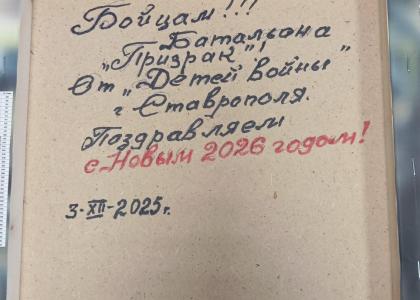 Бойцам!!!
Батальона
„Призрак"!
От „Детей войны"
г Ставрополя.
Поздравляем
с Новым 2026 годом!
3-XII-2025г.